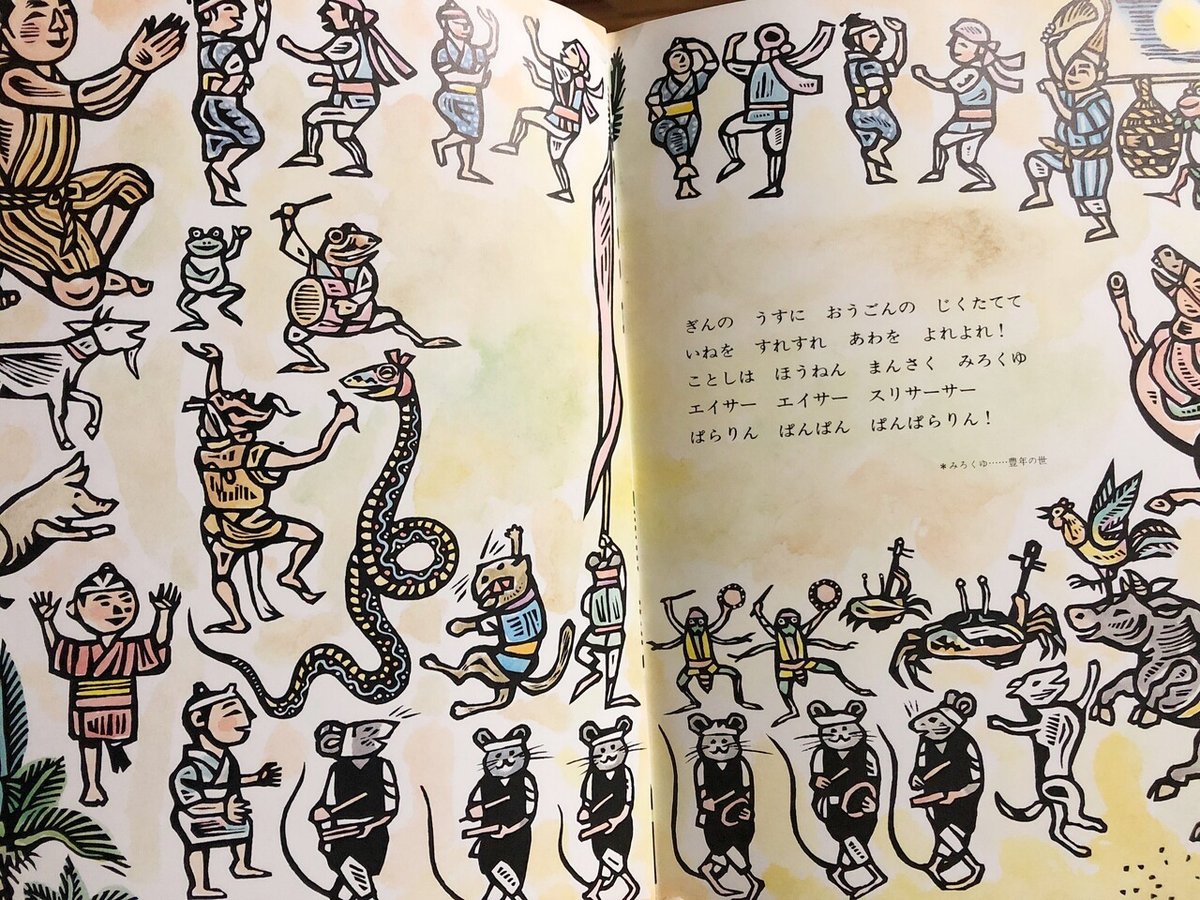 ぎんの　うすに　おうごんの　じくたてて
いねを　すれすれ　あわを　よれよれ！
ことしは　ほうねん　まんさく　みろくゆ
エイサー　エイサー　スリサーサー
ぱらりん　ぱんぱん　ぱんぱらりん！
＊みろくゆ……豊年の世